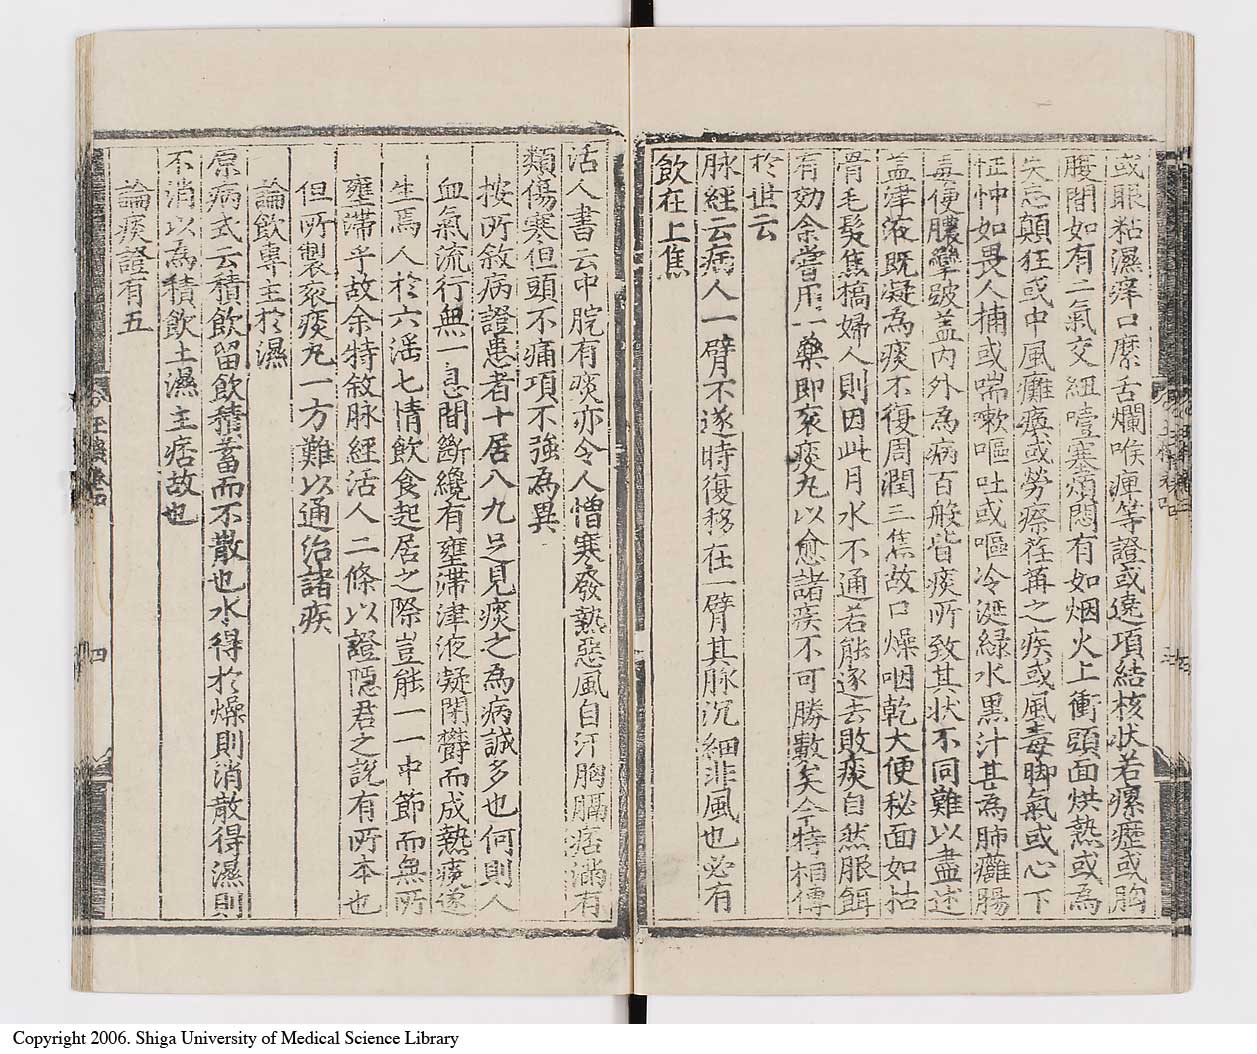 或眼粘濕痒口縻舌爛喉痺等證或遶項結核状若瘰癧或胸
腹間如有二氣交紐噎塞煩悶有如烟火上衝頭面烘熱或為
失忘顛狂或中風癱瘓或勞瘵荏苒之疾或風毒脚氣或心下
怔忡如畏人捕或喘嗽嘔吐或嘔冷涎緑水黒汁甚為肺癰腸
毒便膿攣跛盖内外為病百般皆痰所致其状不同難以盡述
盖津液既凝為痰不復周潤三焦故口燥咽乾大便秘面如枯
骨毛髮焦槁婦人則因此月水不通若能逐去敗痰自然服餌
有効余嘗用一藥即衮痰丸以愈諸疾不可勝數矣今特相傳
於世云
脉經云病人一臂不遂時復移在一臂其脉沉細非風也必有
飲在上焦
活人書云中脘有痰亦令人憎寒發熱惡風自汗胸膈痞滿有
類傷寒但頭不痛項不強為異
按所敘病證患者十居八九足見痰之為病誠多也何則人
血氣流行無一息間斷纔有壅滯津液凝閉欝而成熱痰遂
生焉人於六滛七情飲食起居之際豈能一一中節而無所
壅滯乎故余特敘脉經活人二條以證隱君之説有所本也
但所製衮痰丸一方難以通治諸疾
論飲專主於濕
原病式云積飲留飲積蓄而不散也水得於燥則消散得濕則
不消以為積飲土濕主痞故也
論痰證有五
四
Copyright 2006. Shiga University of Medical Science Library